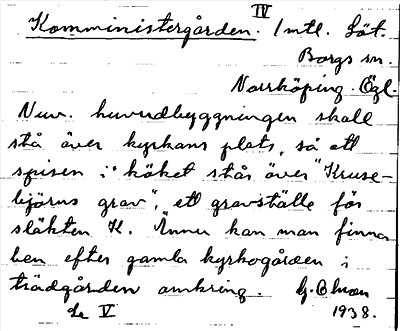 IV
Komministergården. Intl. Löt.
Borgs sn.
Norrköping. Ögl.
Nuv. huvudbyggningen skall
stå över kyrkans plats, så att
spisen i köket står över "Kruse-
björns grav", ett gravställe för
släkten K. Ännu kan man finna
ben efter gamla kyrkogården i
trädgården omkring. G. Ohson
Se V 1938.